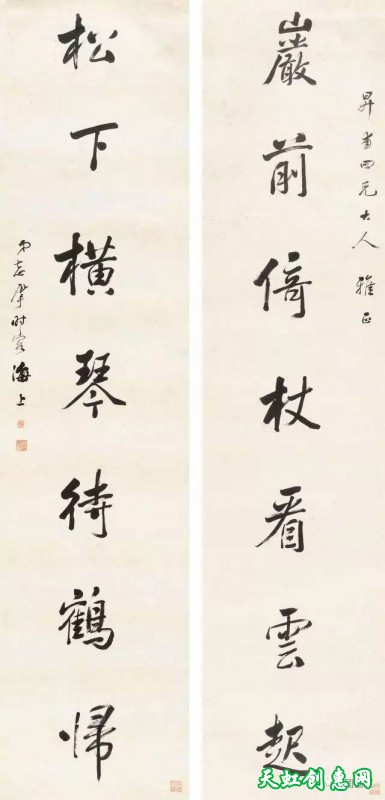 昇甫四兄大人雅正
巖前倚杖看雲起
松下橫琴待鶴歸
弟志肇时客海上
天虹创意网